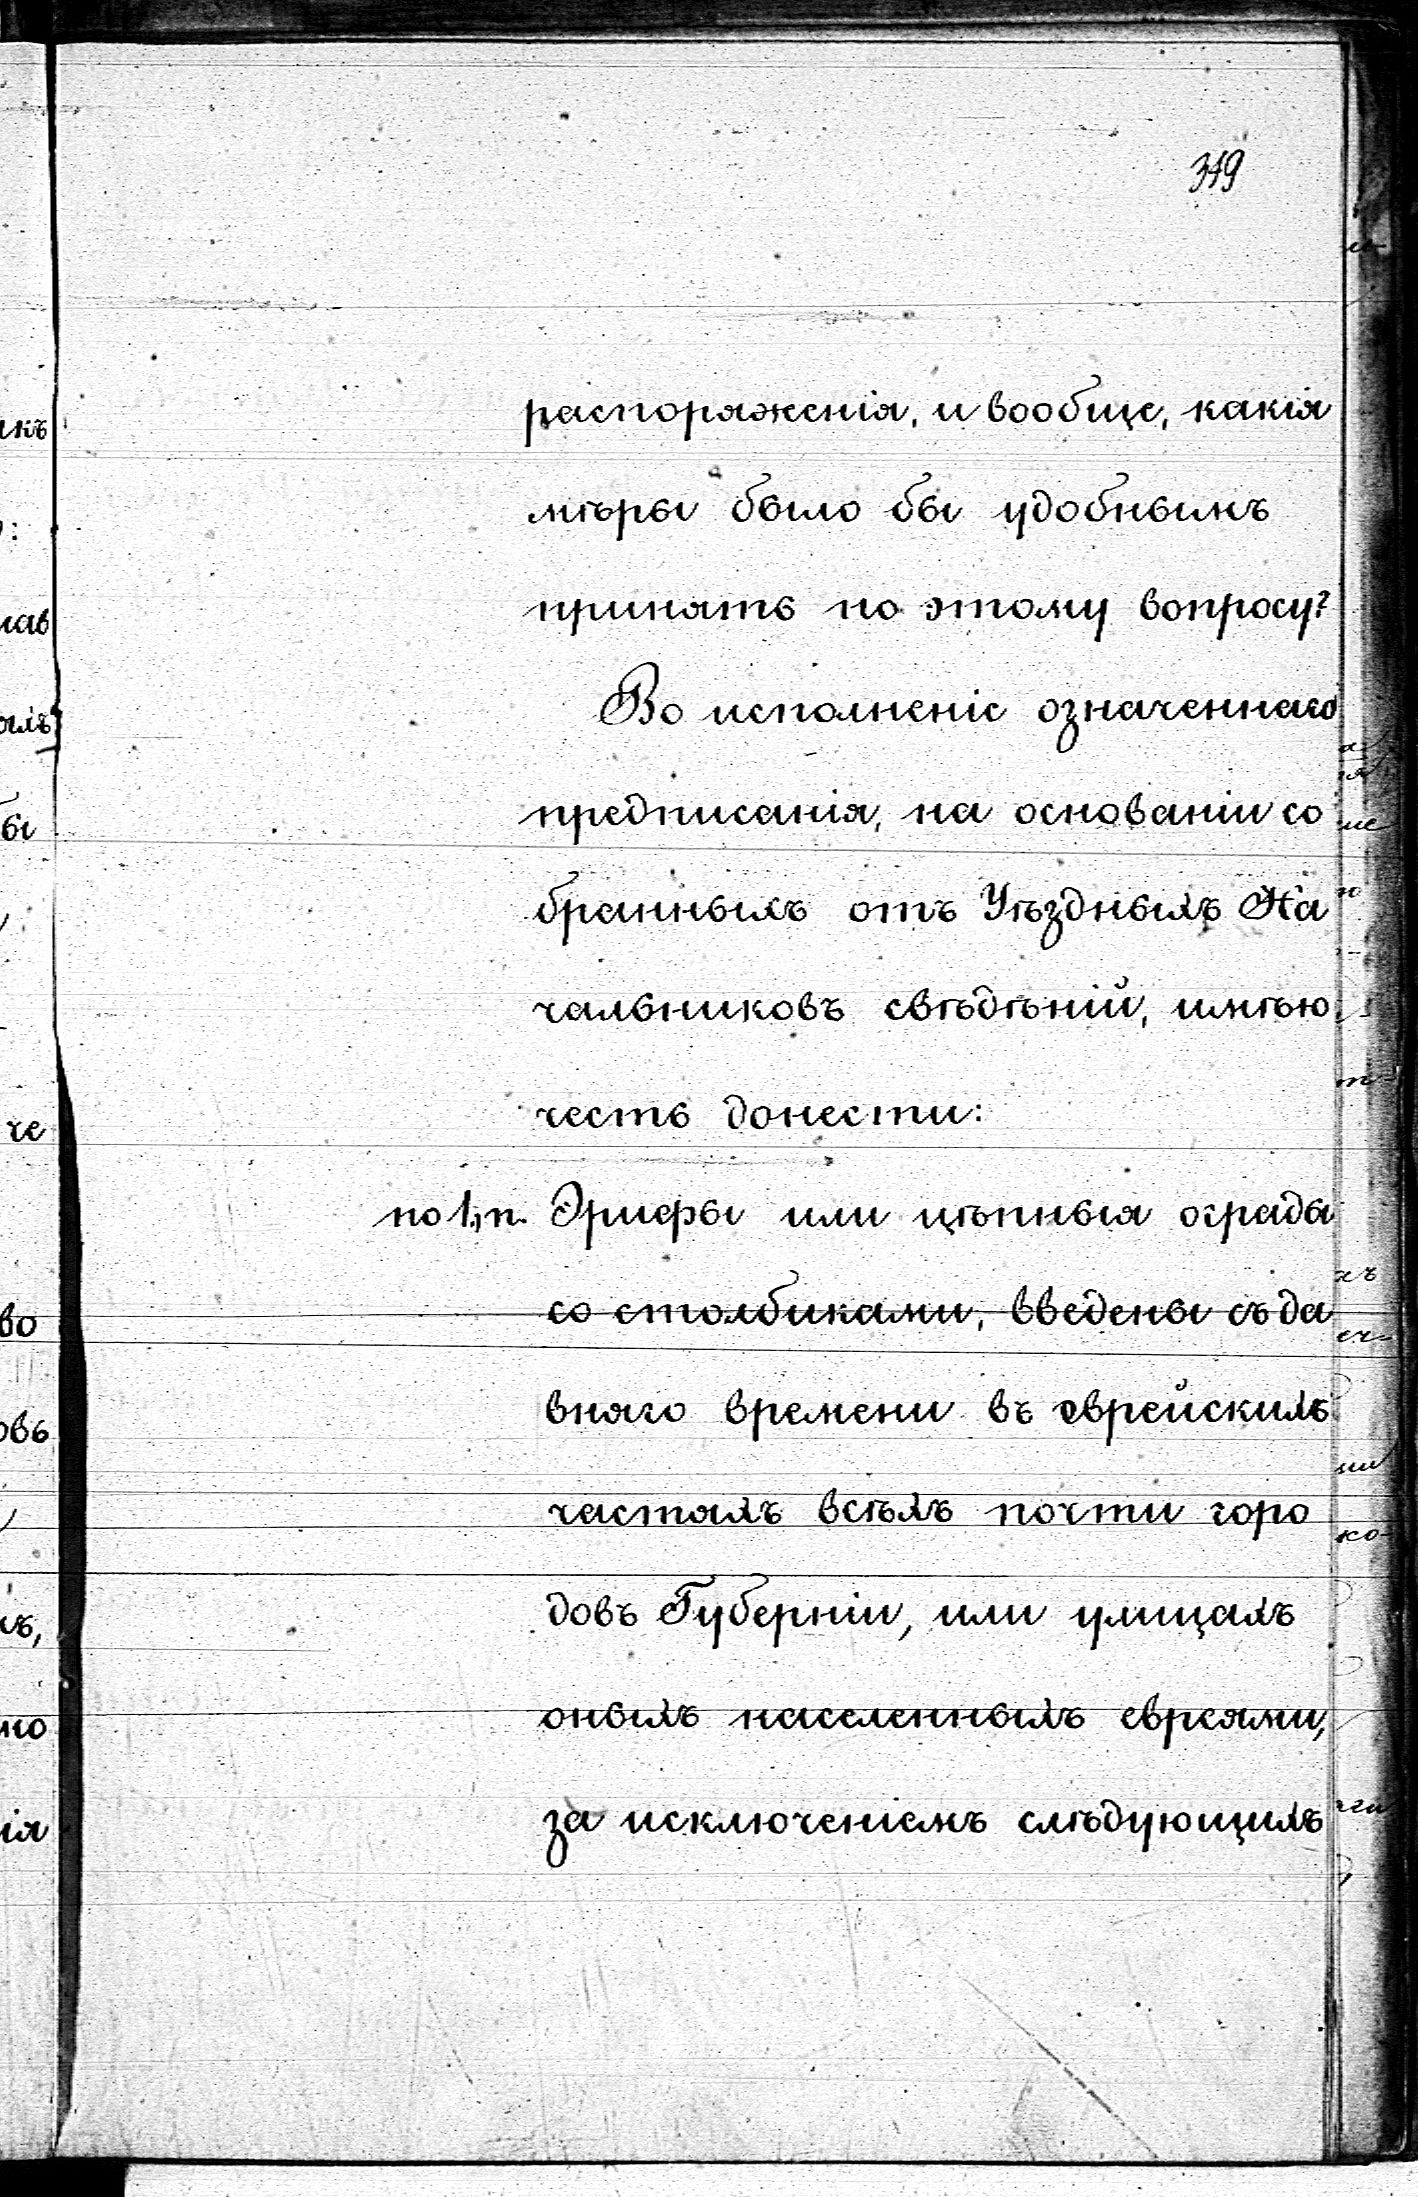 319
распоряженія, и вообще, какія
мѣры было бы удобнымъ
принять по этому вопросу?
Во исполненіе означеннаго
предписанія, на основаніи со
бранныхъ отъ Уѣздныхъ На
чальниковъ свѣдѣній, имѣю
честь донести:
по 1, п. Эриеры или цѣпныя ограды
со столбиками, введены съ да
вняго времени въ еврейскихъ
частяхъ всѣхъ почти горо
довъ Губерніи, или улицахъ
оныхъ населенныхъ евреями,
за исключеніемъ слѣдующихъ